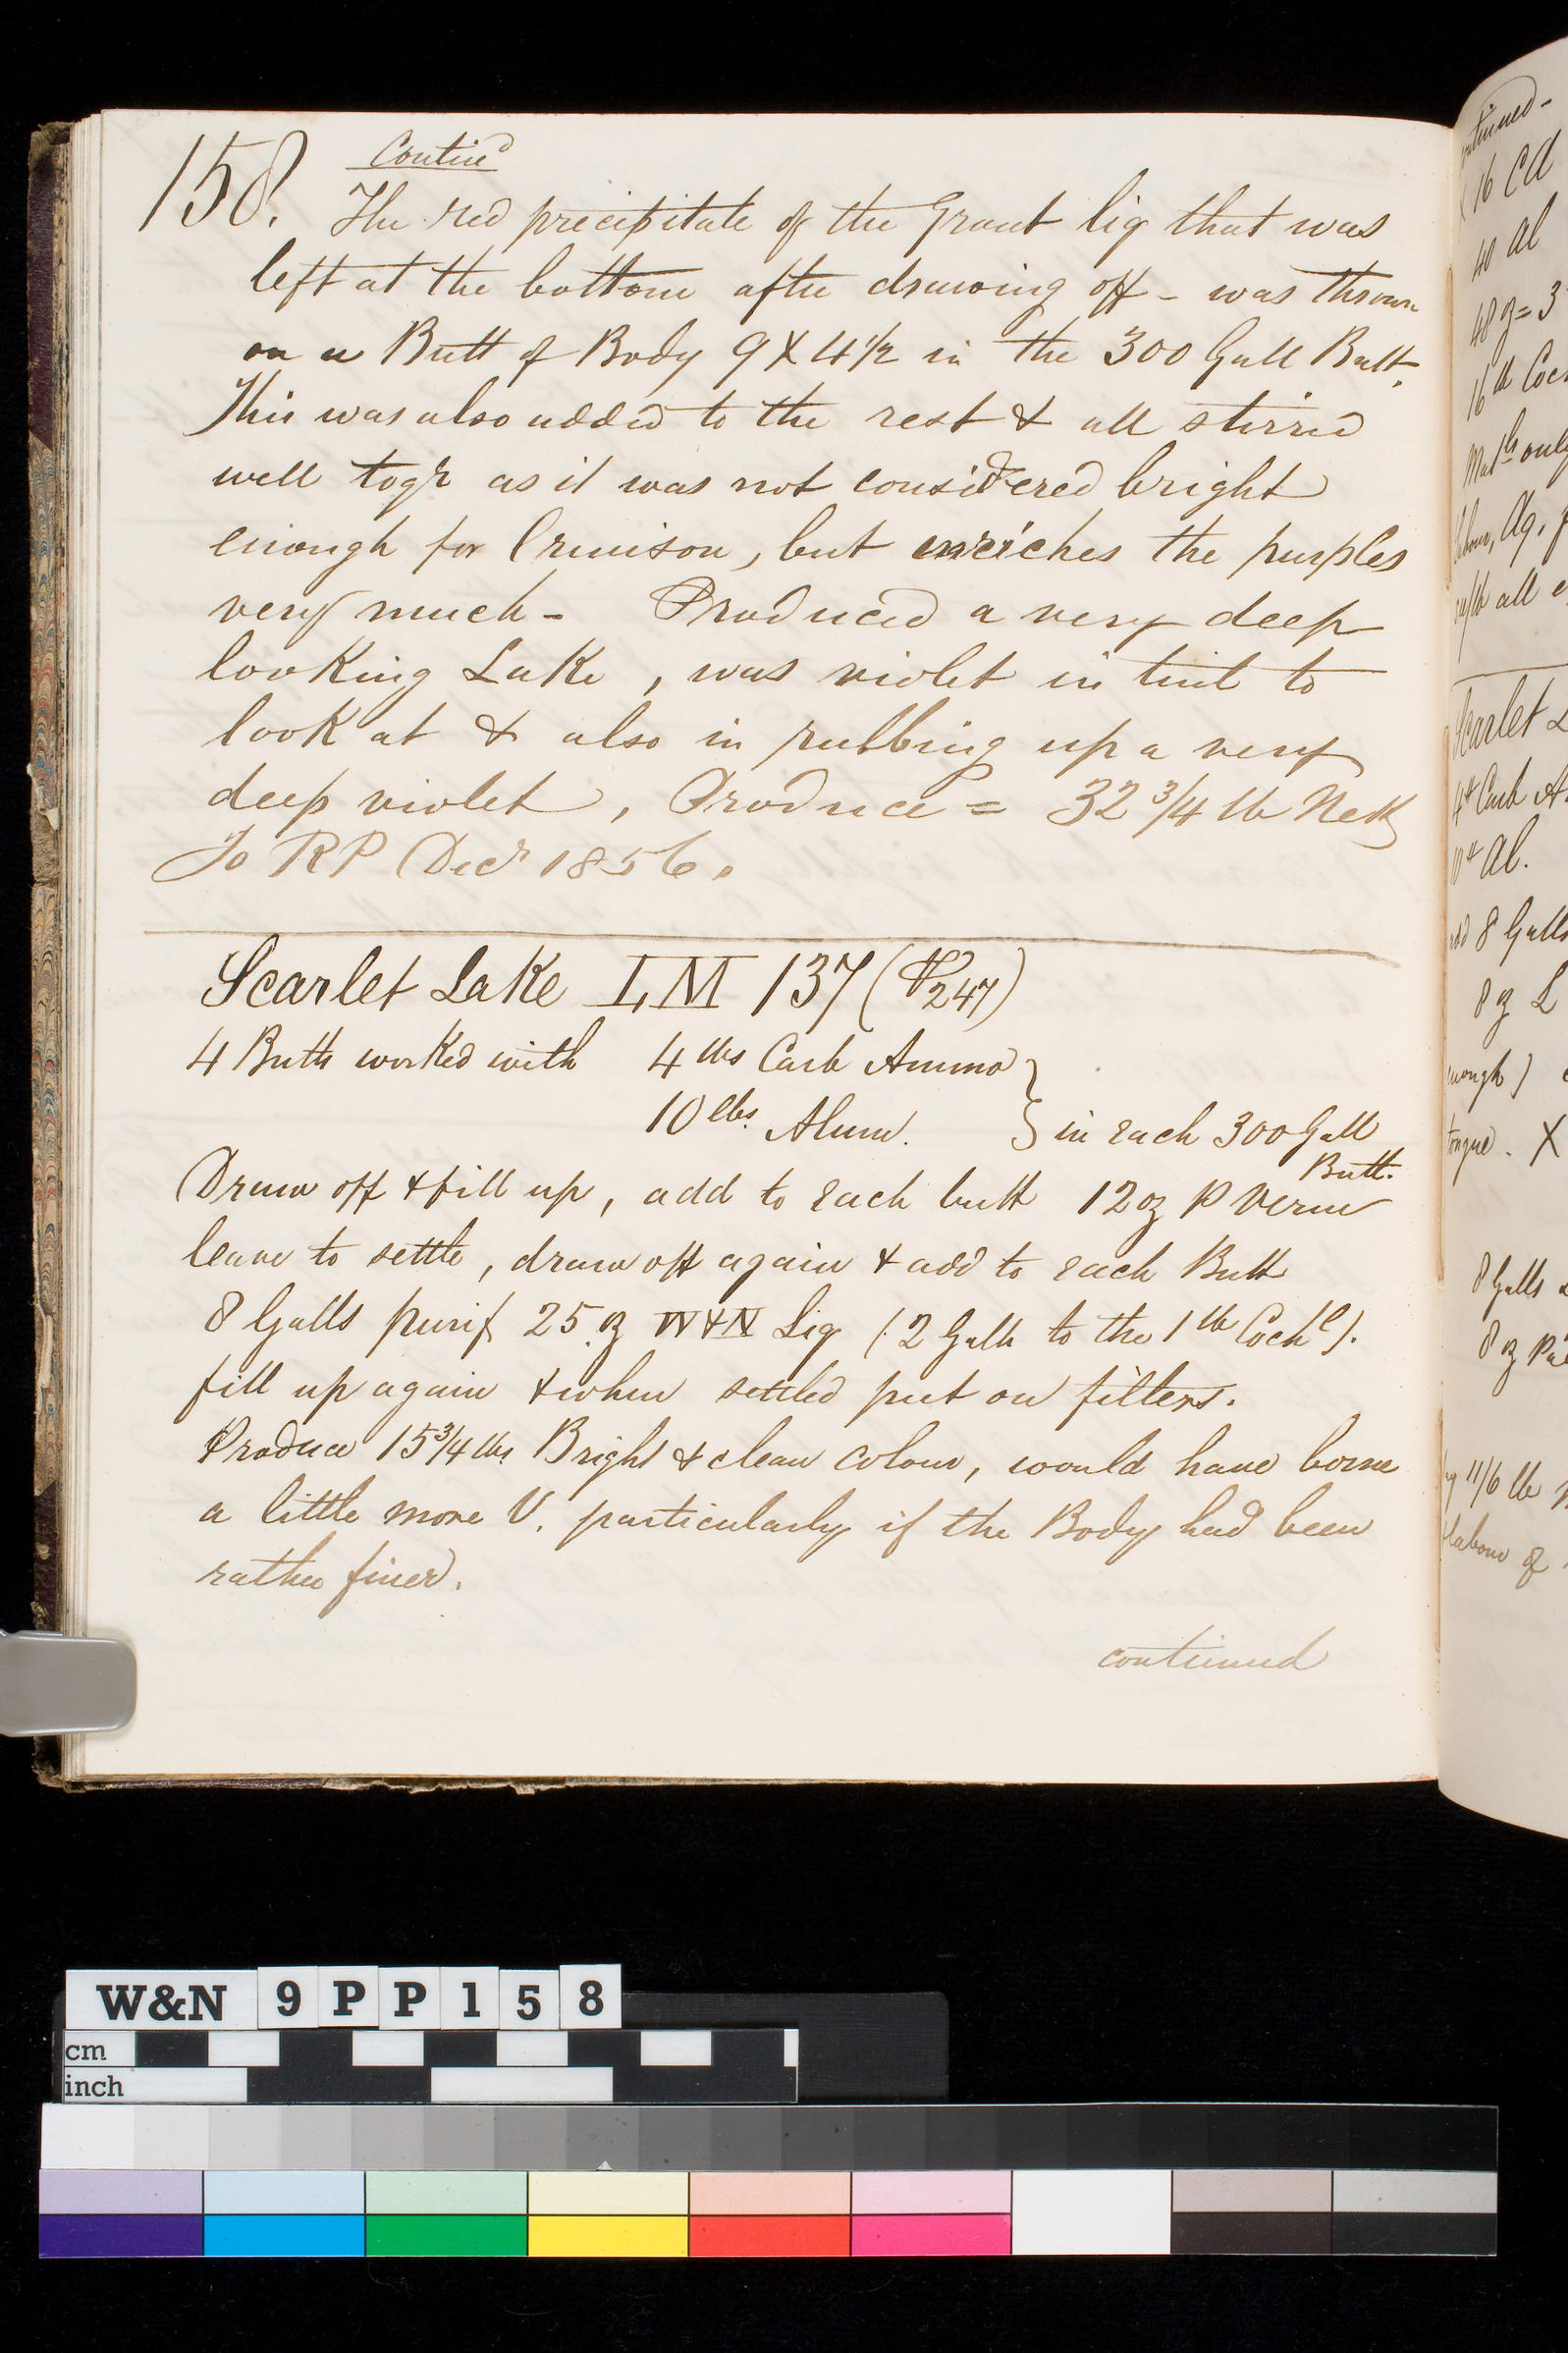 158. Contind
The red precipitate of the Grant liq that was
left at the bottom after drawing off - was thrown
on a Butt of Body 9 X 4½ in the 300 Gall Butt.
This was also added to the rest & all stirred
well togr as it was not considered bright
enough for Crimson, but enriches the purples
very much - Produced a very deep
looking Lake, was violet in tint to
look at & also in rubbing up a very
deep violet, Produce = 32 3/4 lb Nett
To RP Decr 1856.
Scarlet Lake LM 137 (P247)
4 Butts worked with 4 lbs Carb Ammo
10 lbs. Alum. } in each 300 Gall
Butt.
Draw off & fill up, add to each butt 12 oz P Verm
leave to settle, draw off again & add to each Butt
8 Galls purif 25 oz W&N Liq (2 Galls to the 1 lb Cochl).
fill up again & when settled put on filters.
Produce 15 3/4 lbs Bright & clean colour, would have borne
a little more V. particularly if the Body had been
rather finer.
continued
16 Cd
40 al
48 oz = 3
16 lb
only
Scarlet L
4 # Carb A
10 # Al.
8 Galls
8 oz L
tongue. X
8 Galls
8 oz
11/6 lb
labour of
W&N 9PP158
cm
inch